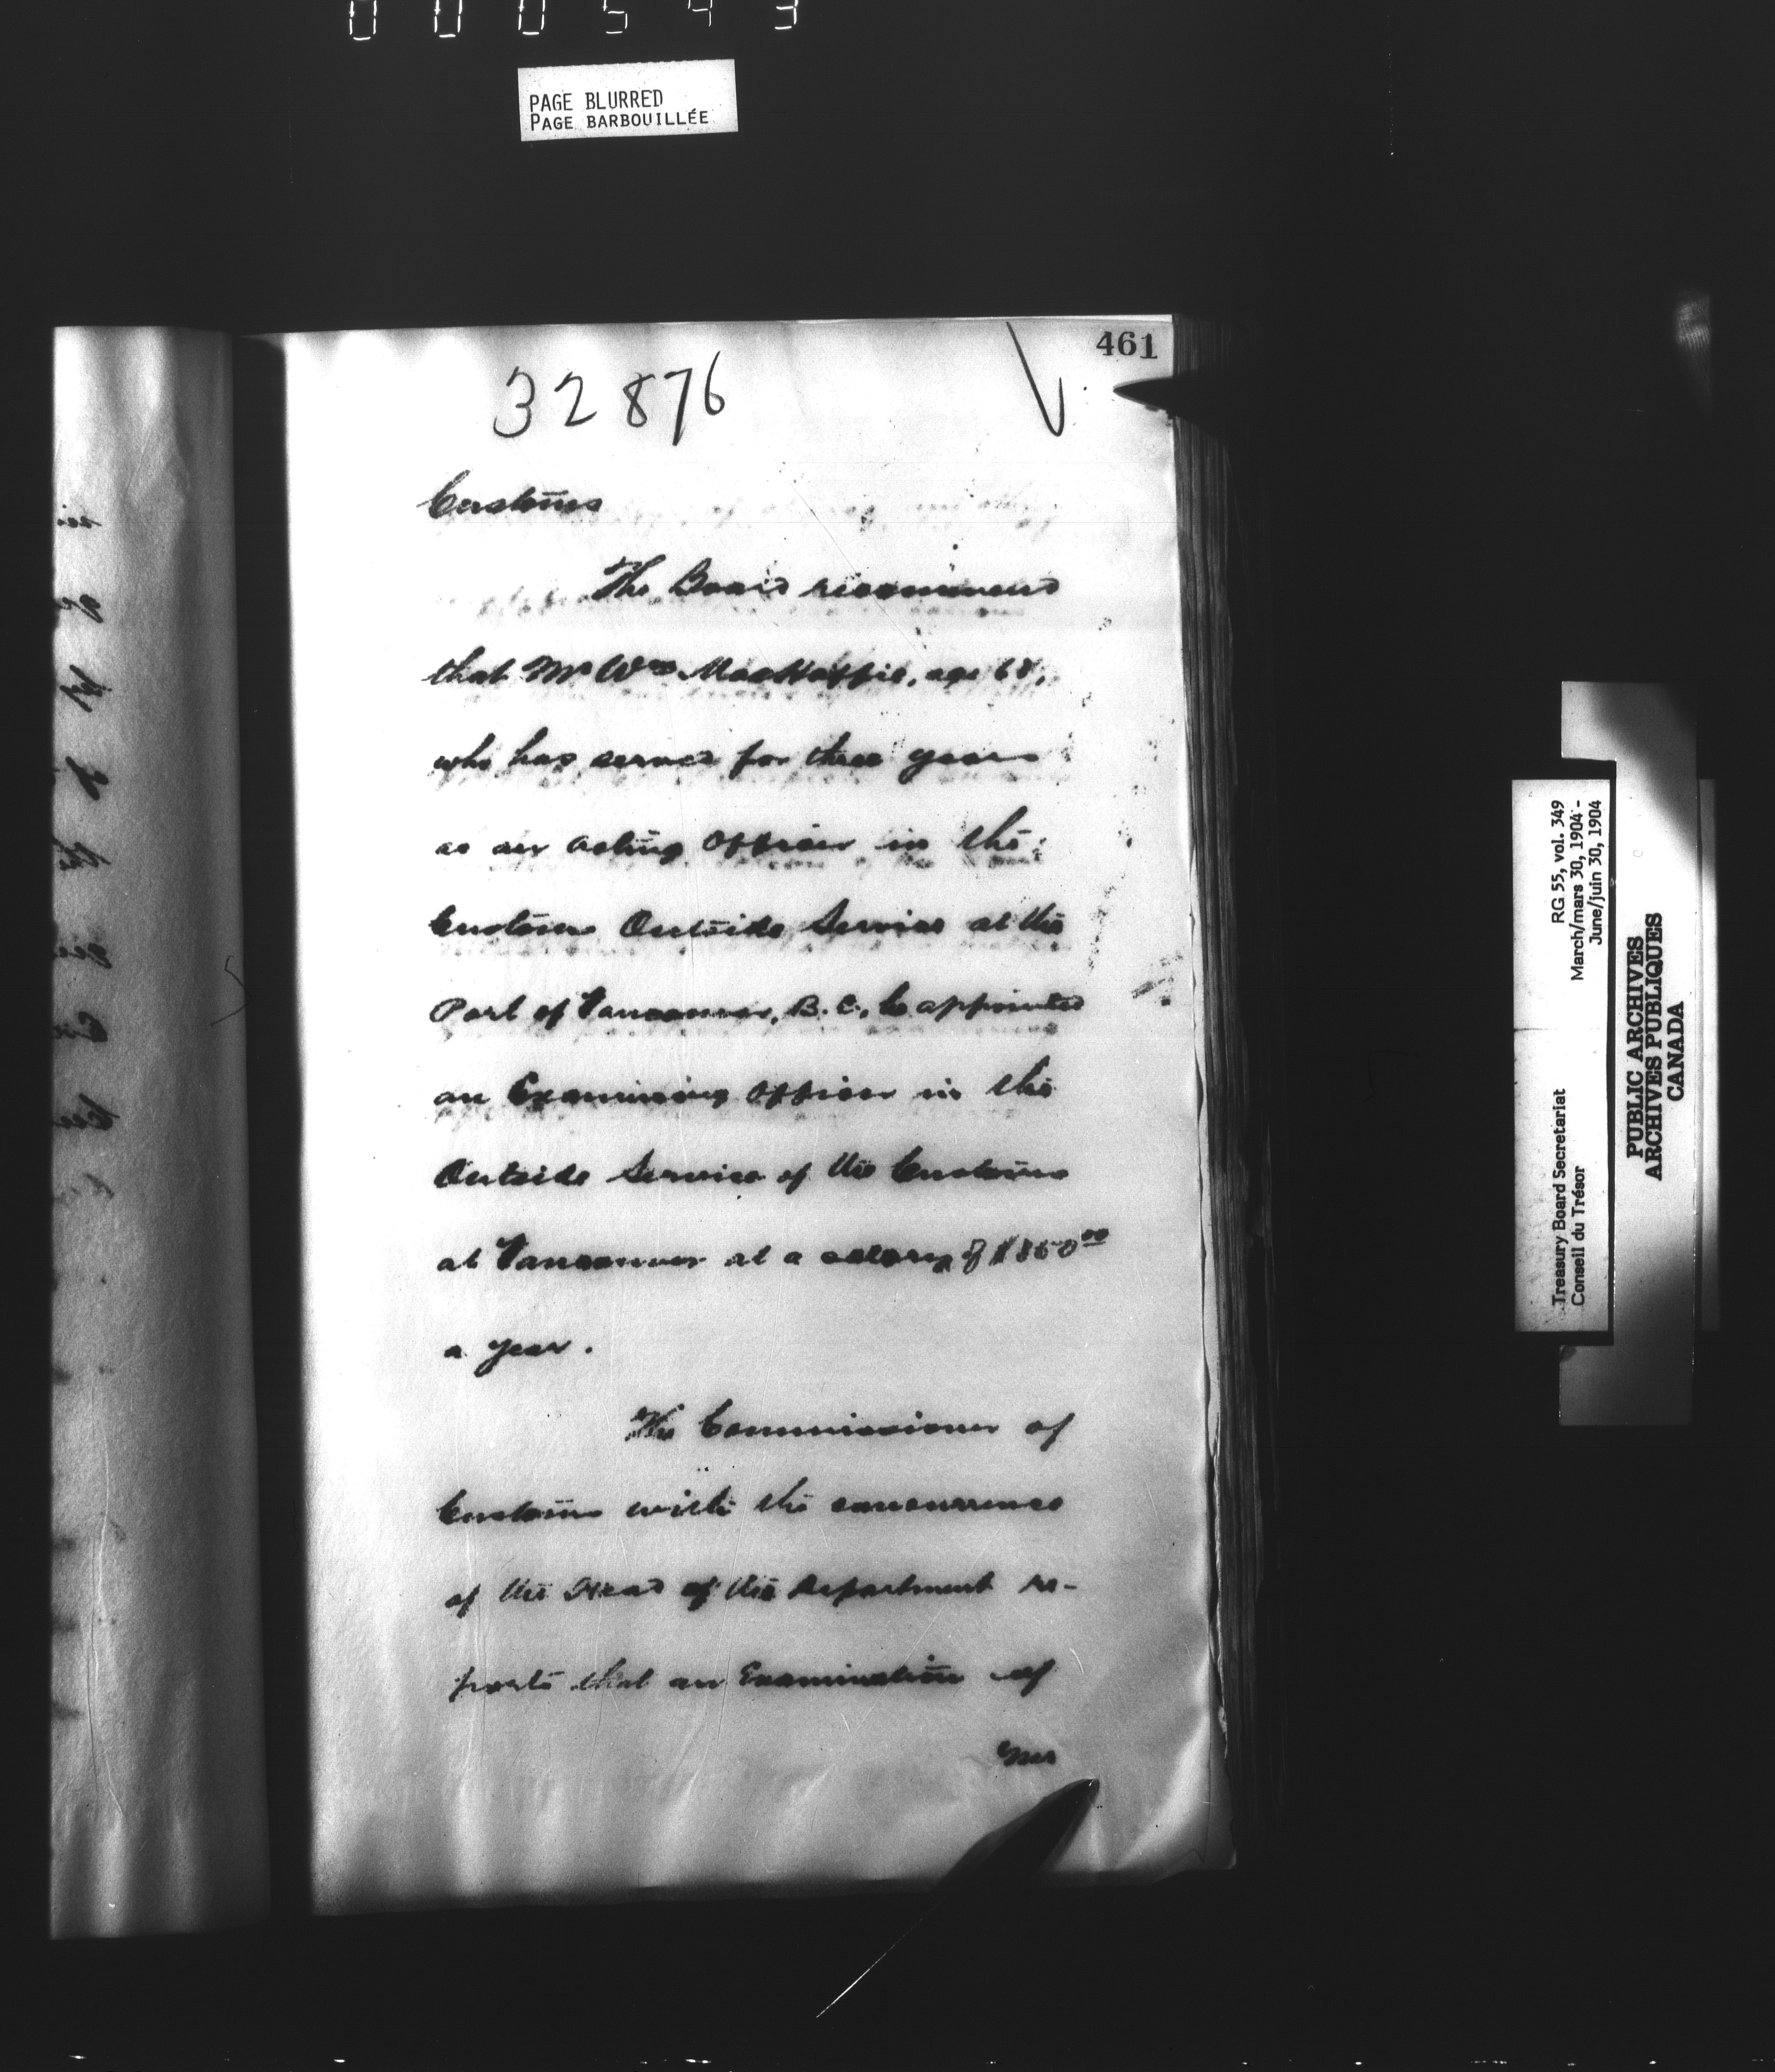 000543
PAGE BLURRED
PAGE BARBOUILLÉE
461
32876
Customs
The Board recommend
that Mr Wm MacHaffie, age 68,
who has served for three years
as an acting officer in the
Customs Outside Service at the
Port of Vancouver, B.C., be appointed
an Examining Officer in the
Outside Service of the Customs
at Vancouver at a salary of $850 00
a year.
The Commissioner of
Customs with the concurrence
of the Head of the Department re-
ports that an Examination of
Mr
Treasury Board Secretariat RG 55, vol. 349
Conseil du Trésor March/mars 30, 1904 -
June/juin 30, 1904
PUBLIC ARCHIVES
ARCHIVES PUBLIQUES
CANADA